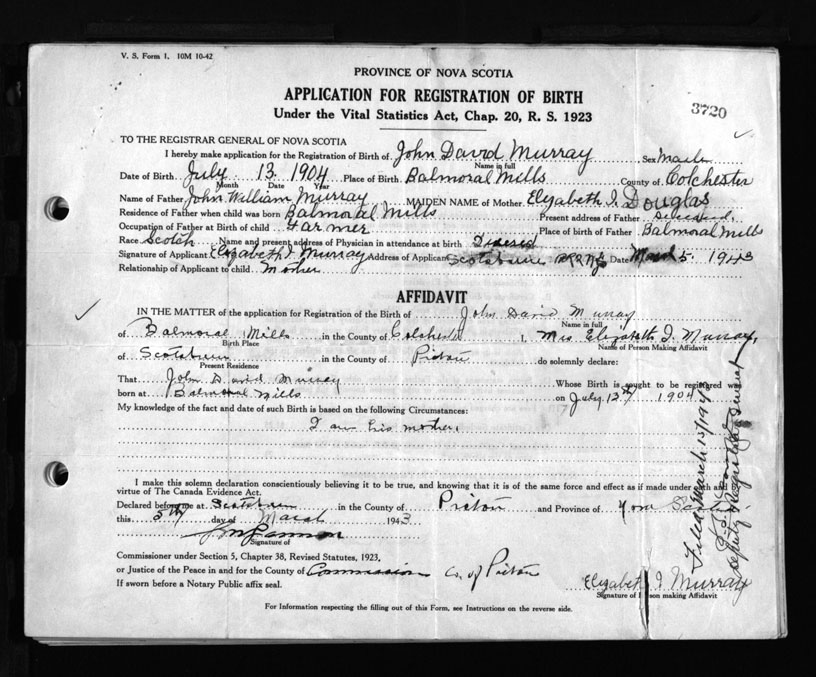 V. S. Form 1. 10M 10-42
PROVINCE OF NOVA SCOTIA
APPLICATION FOR REGISTRATION OF BIRTH
Under the Vital Statistics Act, Chap. 20, R. S. 1923
3720
TO THE REGISTRAR GENERAL OF NOVA SCOTIA
I hereby make application for the Registration of Birth of John David Murray Sex Male
Name in full
Date of Birth July 13 1904 Place of Birth Balmoral Mills County of Colchester
Month Date Year
Name of Father John William Murray MAIDEN NAME of Mother Elizabeth I. Douglas
Residence of Father when child was born Balmoral Mills Present address of Father
Occupation of Father at Birth of child Farmer Place of birth of Father Balmoral Mills
Race Scotch Name and present address of Physician in attendance at birth
Signature of Applicant Elizabeth I Murray Address of Applicant Scotsburn Date March 5. 1943
Relationship of Applicant to child Mother
AFFIDAVIT
IN THE MATTER of the application for Registration of the Birth of John David Murray
Name in full
of Balmoral Mills in the County of Colchester I, Mrs Elizabeth I. Murray,
Birth Place Name of Person Making Affidavit
of Scotsburn in the County of Pictou do solemnly declare:
Present Residence
That John David Murray Whose Birth is sought to be registered was
born at Balmoral Mills on July 13th 1904
My knowledge of the fact and date of such Birth is based on the following Circumstances:
I am his mother.
I make this solemn declaration conscientiously believing it to be true, and knowing that it is of the same force and effect as if made under oath and by
virtue of The Canada Evidence Act.
Declared before me at Scotsburn in the County of Pictou and Province of Nova Scotia
this 5th day of March 1943
Signature of
Commissioner under Section 5, Chapter 38, Revised Statutes, 1923,
or Justice of the Peace in and for the County of Commission Co. of Pictou
If sworn before a Notary Public affix seal.
Elizabeth I Murray
Signature of Person making Affidavit
For Information respecting the filling out of this Form, see Instructions on the reverse side.
Filed March 15/1943
Deputy Registrar General